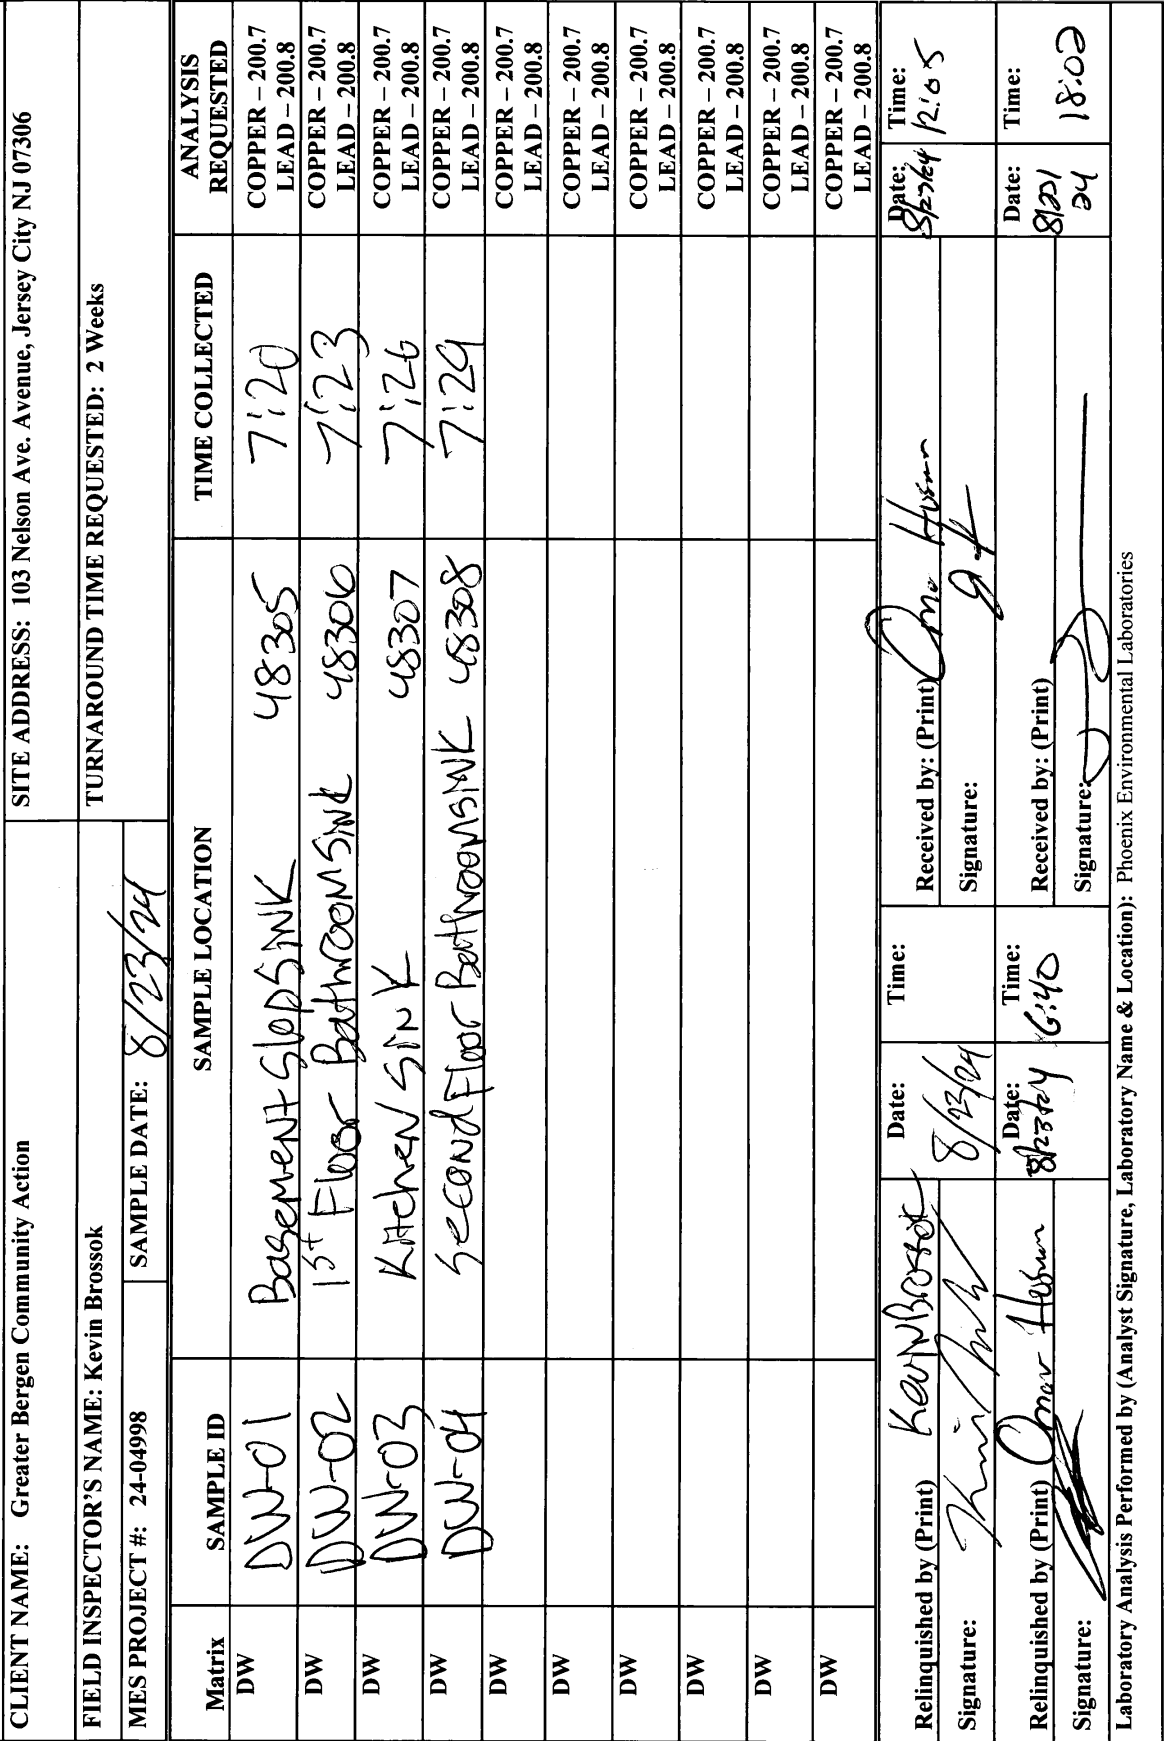 CLIENT NAME: Greater Bergen Community Action
SITE ADDRESS: 103 Nelson Ave. Avenue, Jersey City NJ 07306
FIELD INSPECTOR'S NAME: Kevin Brossok
TURNAROUND TIME REQUESTED: 2 Weeks
MES PROJECT #: 24-04998
SAMPLE DATE: 8/23/24
Matrix SAMPLE ID SAMPLE LOCATION TIME COLLECTED ANALYSIS REQUESTED
DW DW-01 Basement Slop Sink 48305 7:20 COPPER – 200.7
LEAD – 200.8
DW DW-02 1st Floor Bathroom Sink 48306 7:23 COPPER – 200.7
LEAD – 200.8
DW DW-03 Kitchen Sink 48307 7:26 COPPER – 200.7
LEAD – 200.8
DW DW-04 Second Floor Bathroom Sink 48308 7:29 COPPER – 200.7
LEAD – 200.8
DW COPPER – 200.7
LEAD – 200.8
DW COPPER – 200.7
LEAD – 200.8
DW COPPER – 200.7
LEAD – 200.8
DW COPPER – 200.7
LEAD – 200.8
DW COPPER – 200.7
LEAD – 200.8
DW COPPER – 200.7
LEAD – 200.8
Relinquished by (Print) Kevin Brossok
Signature:
Date: 8/23/24
Time:
Received by: (Print)
Signature:
Date: Time:
Relinquished by (Print) Omar
Signature:
Date: 8/23/24
Time: 6:40
Received by: (Print)
Signature:
Date: Time: 18:02
Laboratory Analysis Performed by (Analyst Signature, Laboratory Name & Location): Phoenix Environmental Laboratories